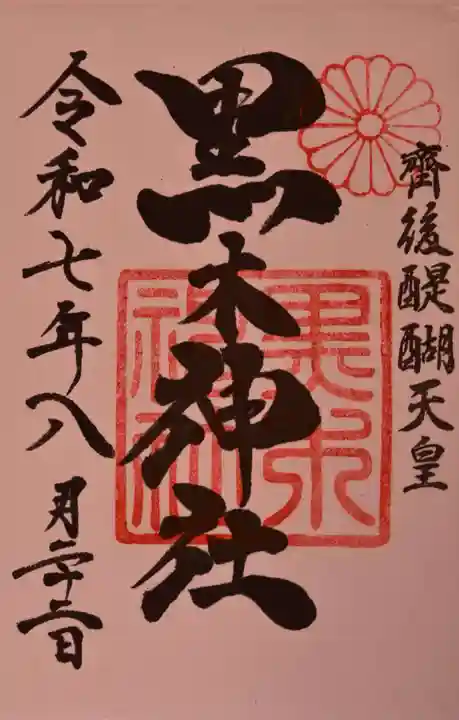 齋後醍醐天皇
黒木神社
黒木神社
令和七年八月二十二日